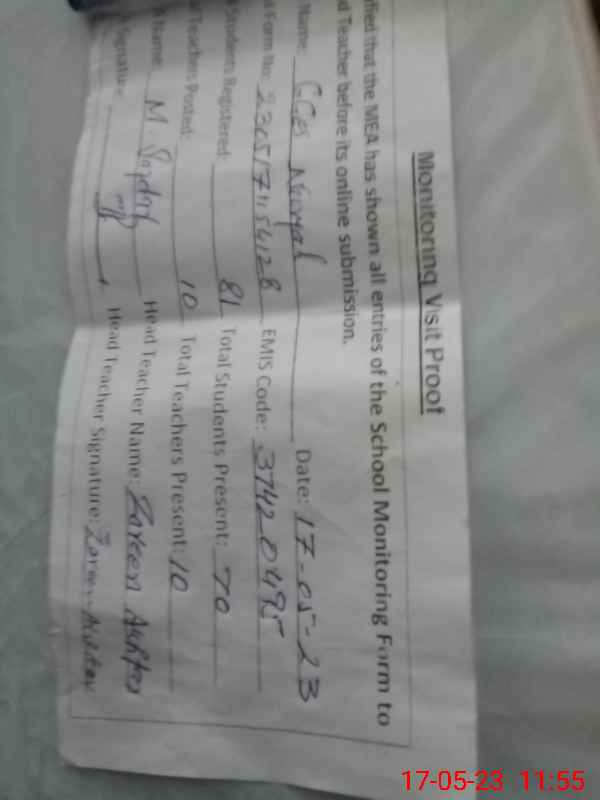 Monitoring Visit Proof
ified that the MEA has shown all entries of the School Monitoring Form to
d Teacher before its online submission.
Name: Date: 17-05-23
Form No: EMIS Code: 37420495
Students Registered: 81 Total Students Present: 70
Teachers Posted: 10 Total Teachers Present: 10
Name: M. Head Teacher Name: Zareen Akhter
Signature: Head Teacher Signature: Zareen Akhter
17-05-23 11:55